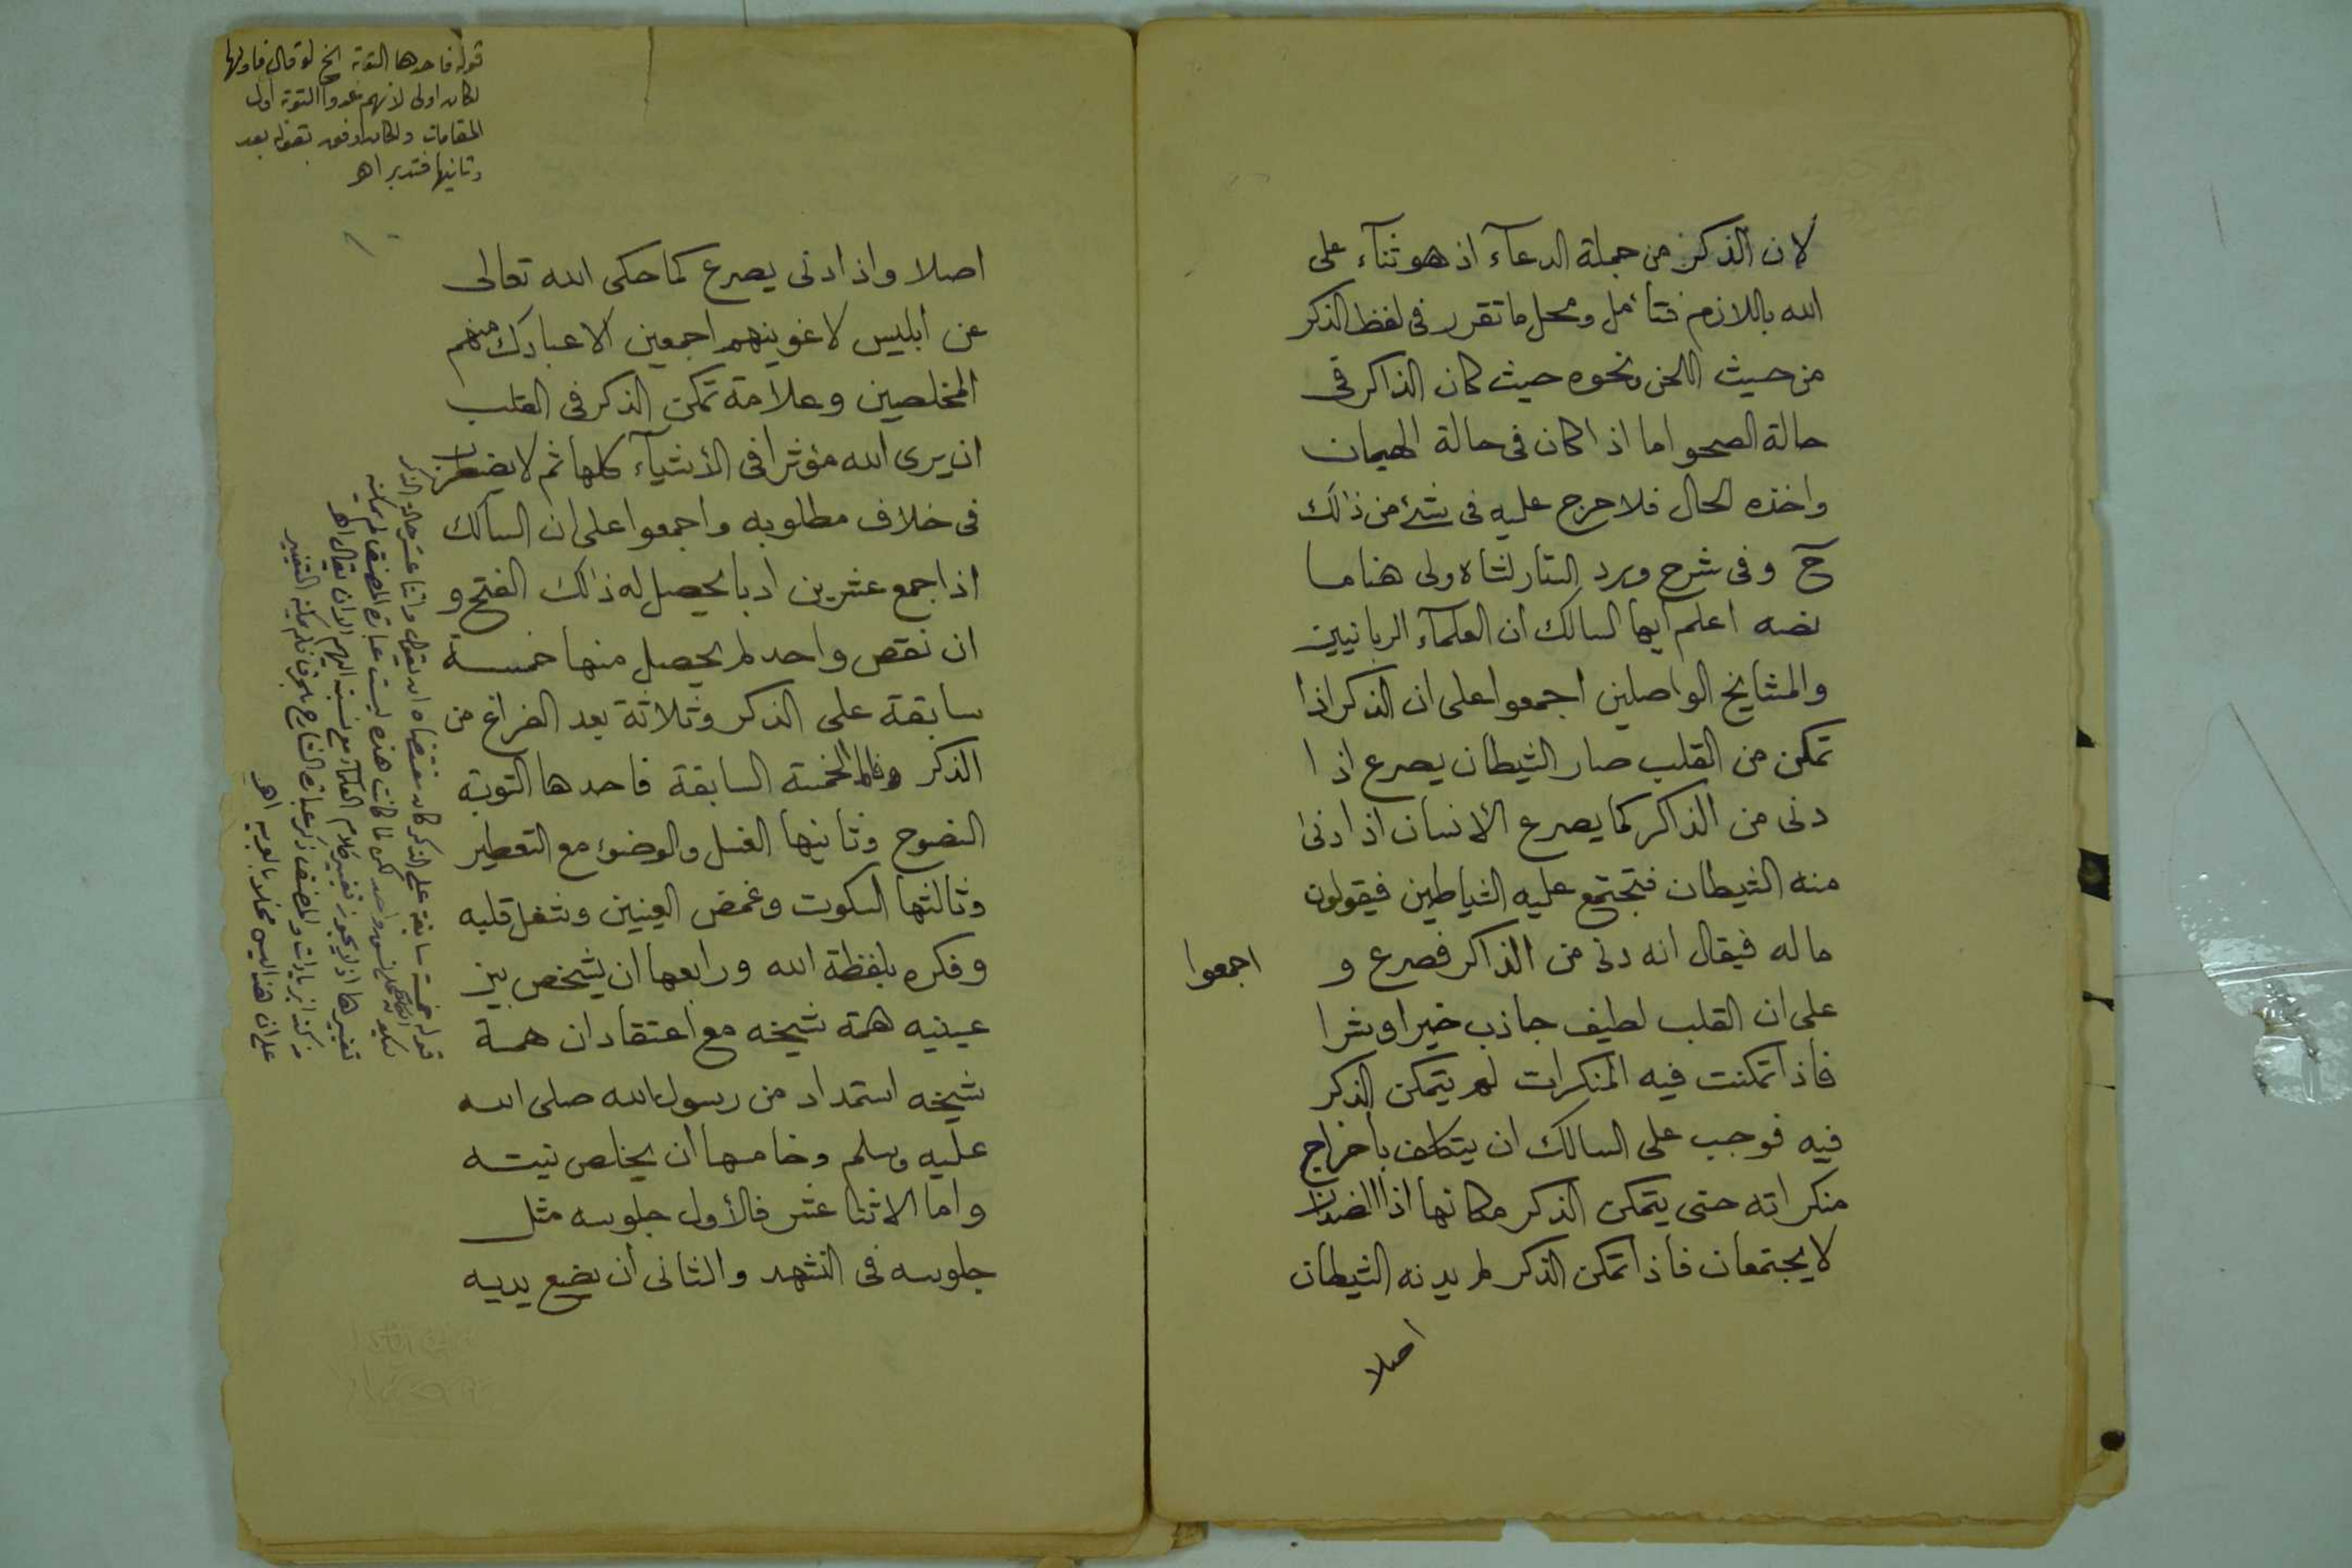 لان الذكر من جملة الدعآء اذ هو ثنآء على
الله باللازم فتأمل ومحل ما تقرر فى لفظ الذكر
من حيث اللحن ونحوه حيث كان الذاكر فى
حالة الصحو اما اذا كان فى حالة الهيمان
واخذه الحال فلا حرج عليه فى شئ من ذلك
آح وفى شرح ورد الستار لشاه ولى هنا ما
نصه اعلم ايها السالك ان العلمآء الربانيين
والمشايخ الواصلين اجمعوا على ان الذكر اذا
تمكن من القلب صار الشيطان يصرع اذا
دنى من الذاكر كما يصرع الانسان اذا دنى
منه الشيطان فتجتمع عليه الشياطين فيقولون
ما له فيقال انه دنى من الذاكر فصرع و
اجمعوا
على ان القلب لطيف جاذب خيرا وشرا
فاذا تمكنت فيه المنكرات لم يتمكن الذكر
فيه فوجب على السالك ان يتكلف باخراج
منكراته حتى يتمكن الذكر مكانها اذا الضدان
لا يجتمعان فاذا تمكن الذكر لم يدنه الشيطان
اصلا
قوله فاحدها التوبة الخ لو قال فاولها
لكان اولى لانهم عدوا التوبة اول
المقامات ولكان اوفق بقوله بعد
وثانيها فتدبر اهـ
اصلا واذا دنى يصرع كما حكى الله تعالى
عن ابليس لاغوينهم اجمعين الا عبادك منهم
المخلصين وعلامة تمكن الذكر فى القلب
ان يرى الله مؤثرا فى الأشيآء كلها ثم لا يضطرن
فى خلاف مطلوبه واجمعوا على ان السالك
اذا جمع عشرين ادبا يحصل له ذلك الفتح و
ان نقص واحد لم يحصل منها خمسة
سابقة على الذكر وثلاثة بعد الفراغ من
الذكر الخمسة السابقة فاحدها التوبة
النصوح وثانيها الغسل والوضوء مع التعطير
وثالثها السكوت وغمض العينين وشغل قلبه
وفكره بلفظة الله ورابعها ان يشخص بين
عينيه همة شيخه مع اعتقاد ان همة
شيخه استمداد من رسول الله صلى الله
عليه وسلم وخامسها ان يخلص نيته
واما الاثنا عشر فالأول جلوسه مثل
جلوسه فى التشهد والثانى ان يضع يديه
قوله خمسة سابقة على الذكر كان مقتضاه ان يقول واثنا عشر حالة الذكر
لكن لما كانت هذه ليست عبارة المصنف لم يمكنه
تغييرها اذ لا يجوز تغيير كلام العلمآء مع نسبته اليهم الا ان يقال
ذكر عبارة الشارح فلم يمكنه التغيير
على ان هذا ليس مخلا اهـ